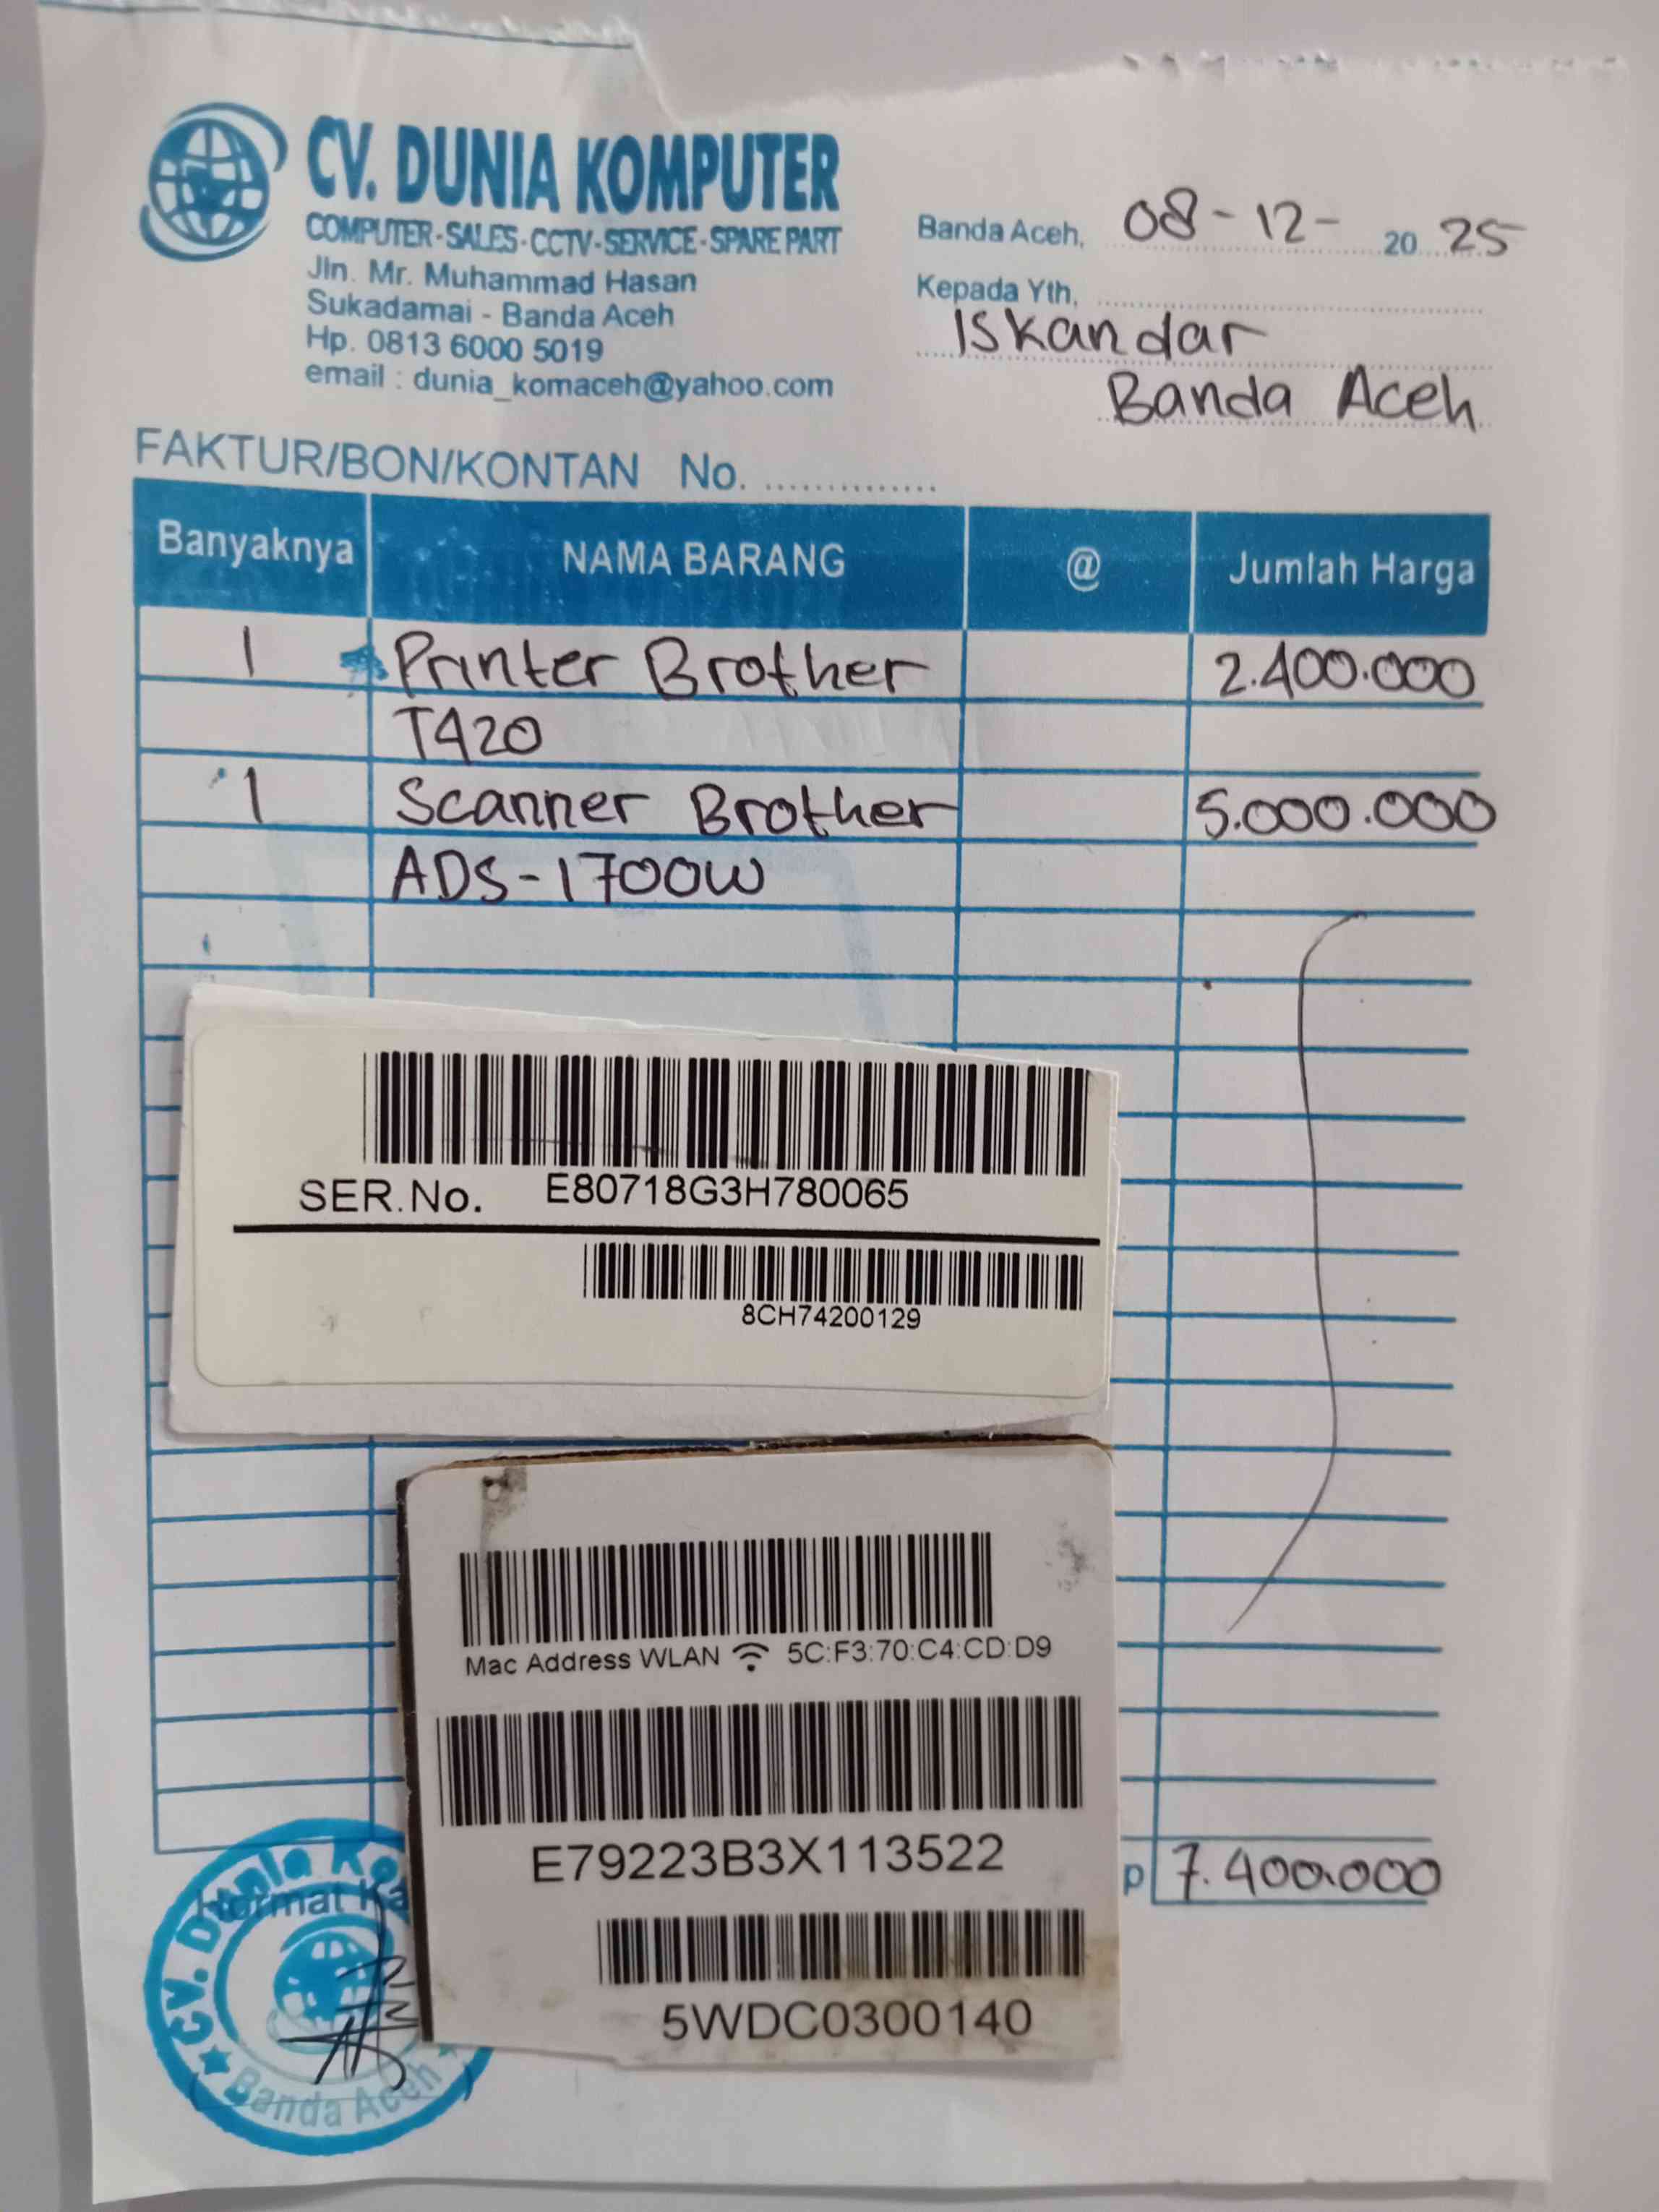 CV. DUNIA KOMPUTER
COMPUTER - SALES - CCTV - SERVICE - SPARE PART
Jln. Mr. Muhammad Hasan
Sukadamai - Banda Aceh
Hp. 0813 6000 5019
email : dunia_komaceh@yahoo.com
Banda Aceh, 08-12- 20 25
Kepada Yth,
Iskandar
Banda Aceh
FAKTUR/BON/KONTAN No.
Banyaknya NAMA BARANG @ Jumlah Harga
1 Printer Brother 2.400.000
T420
1 Scanner Brother 5.000.000
ADS-1700W
SER.No. E80718G3H780065
8CH74200129
Mac Address WLAN 5C:F3:70:C4:CD:D9
E79223B3X113522
5WDC0300140
p 7.400.000
Hormat Ka
CV. Dunia Ko
Banda Aceh